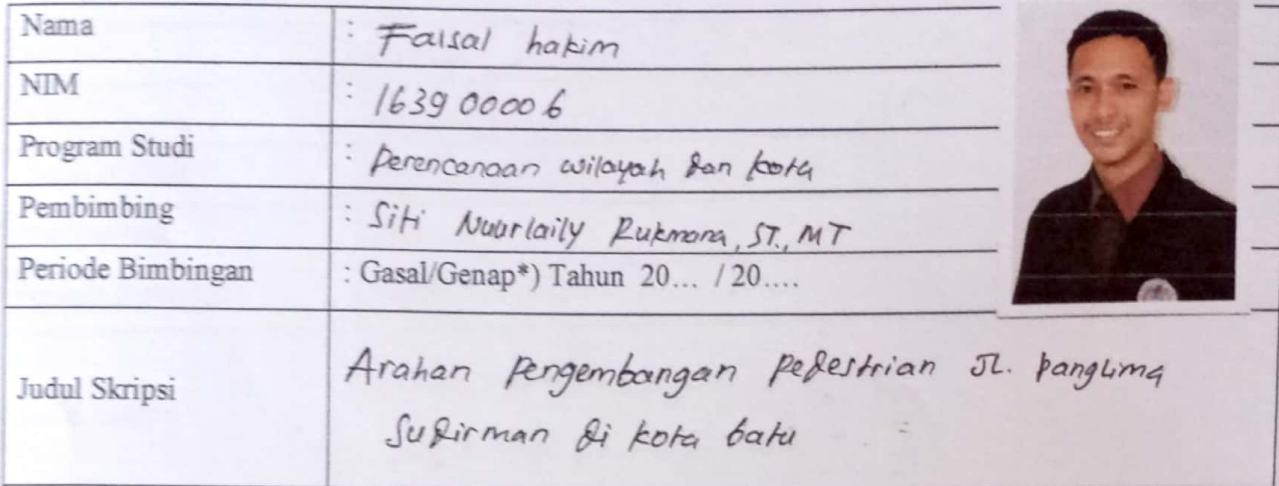 Nama : Faisal hakim
NIM : 163900006
Program Studi : Perencanaan wilayah dan kota
Pembimbing : Siti Nuurlaily Rukmana, ST., MT
Periode Bimbingan : Gasal/Genap*) Tahun 20... / 20....
Judul Skripsi Arahan Pengembangan pedestrian Jl. panglima
Sudirman di kota batu